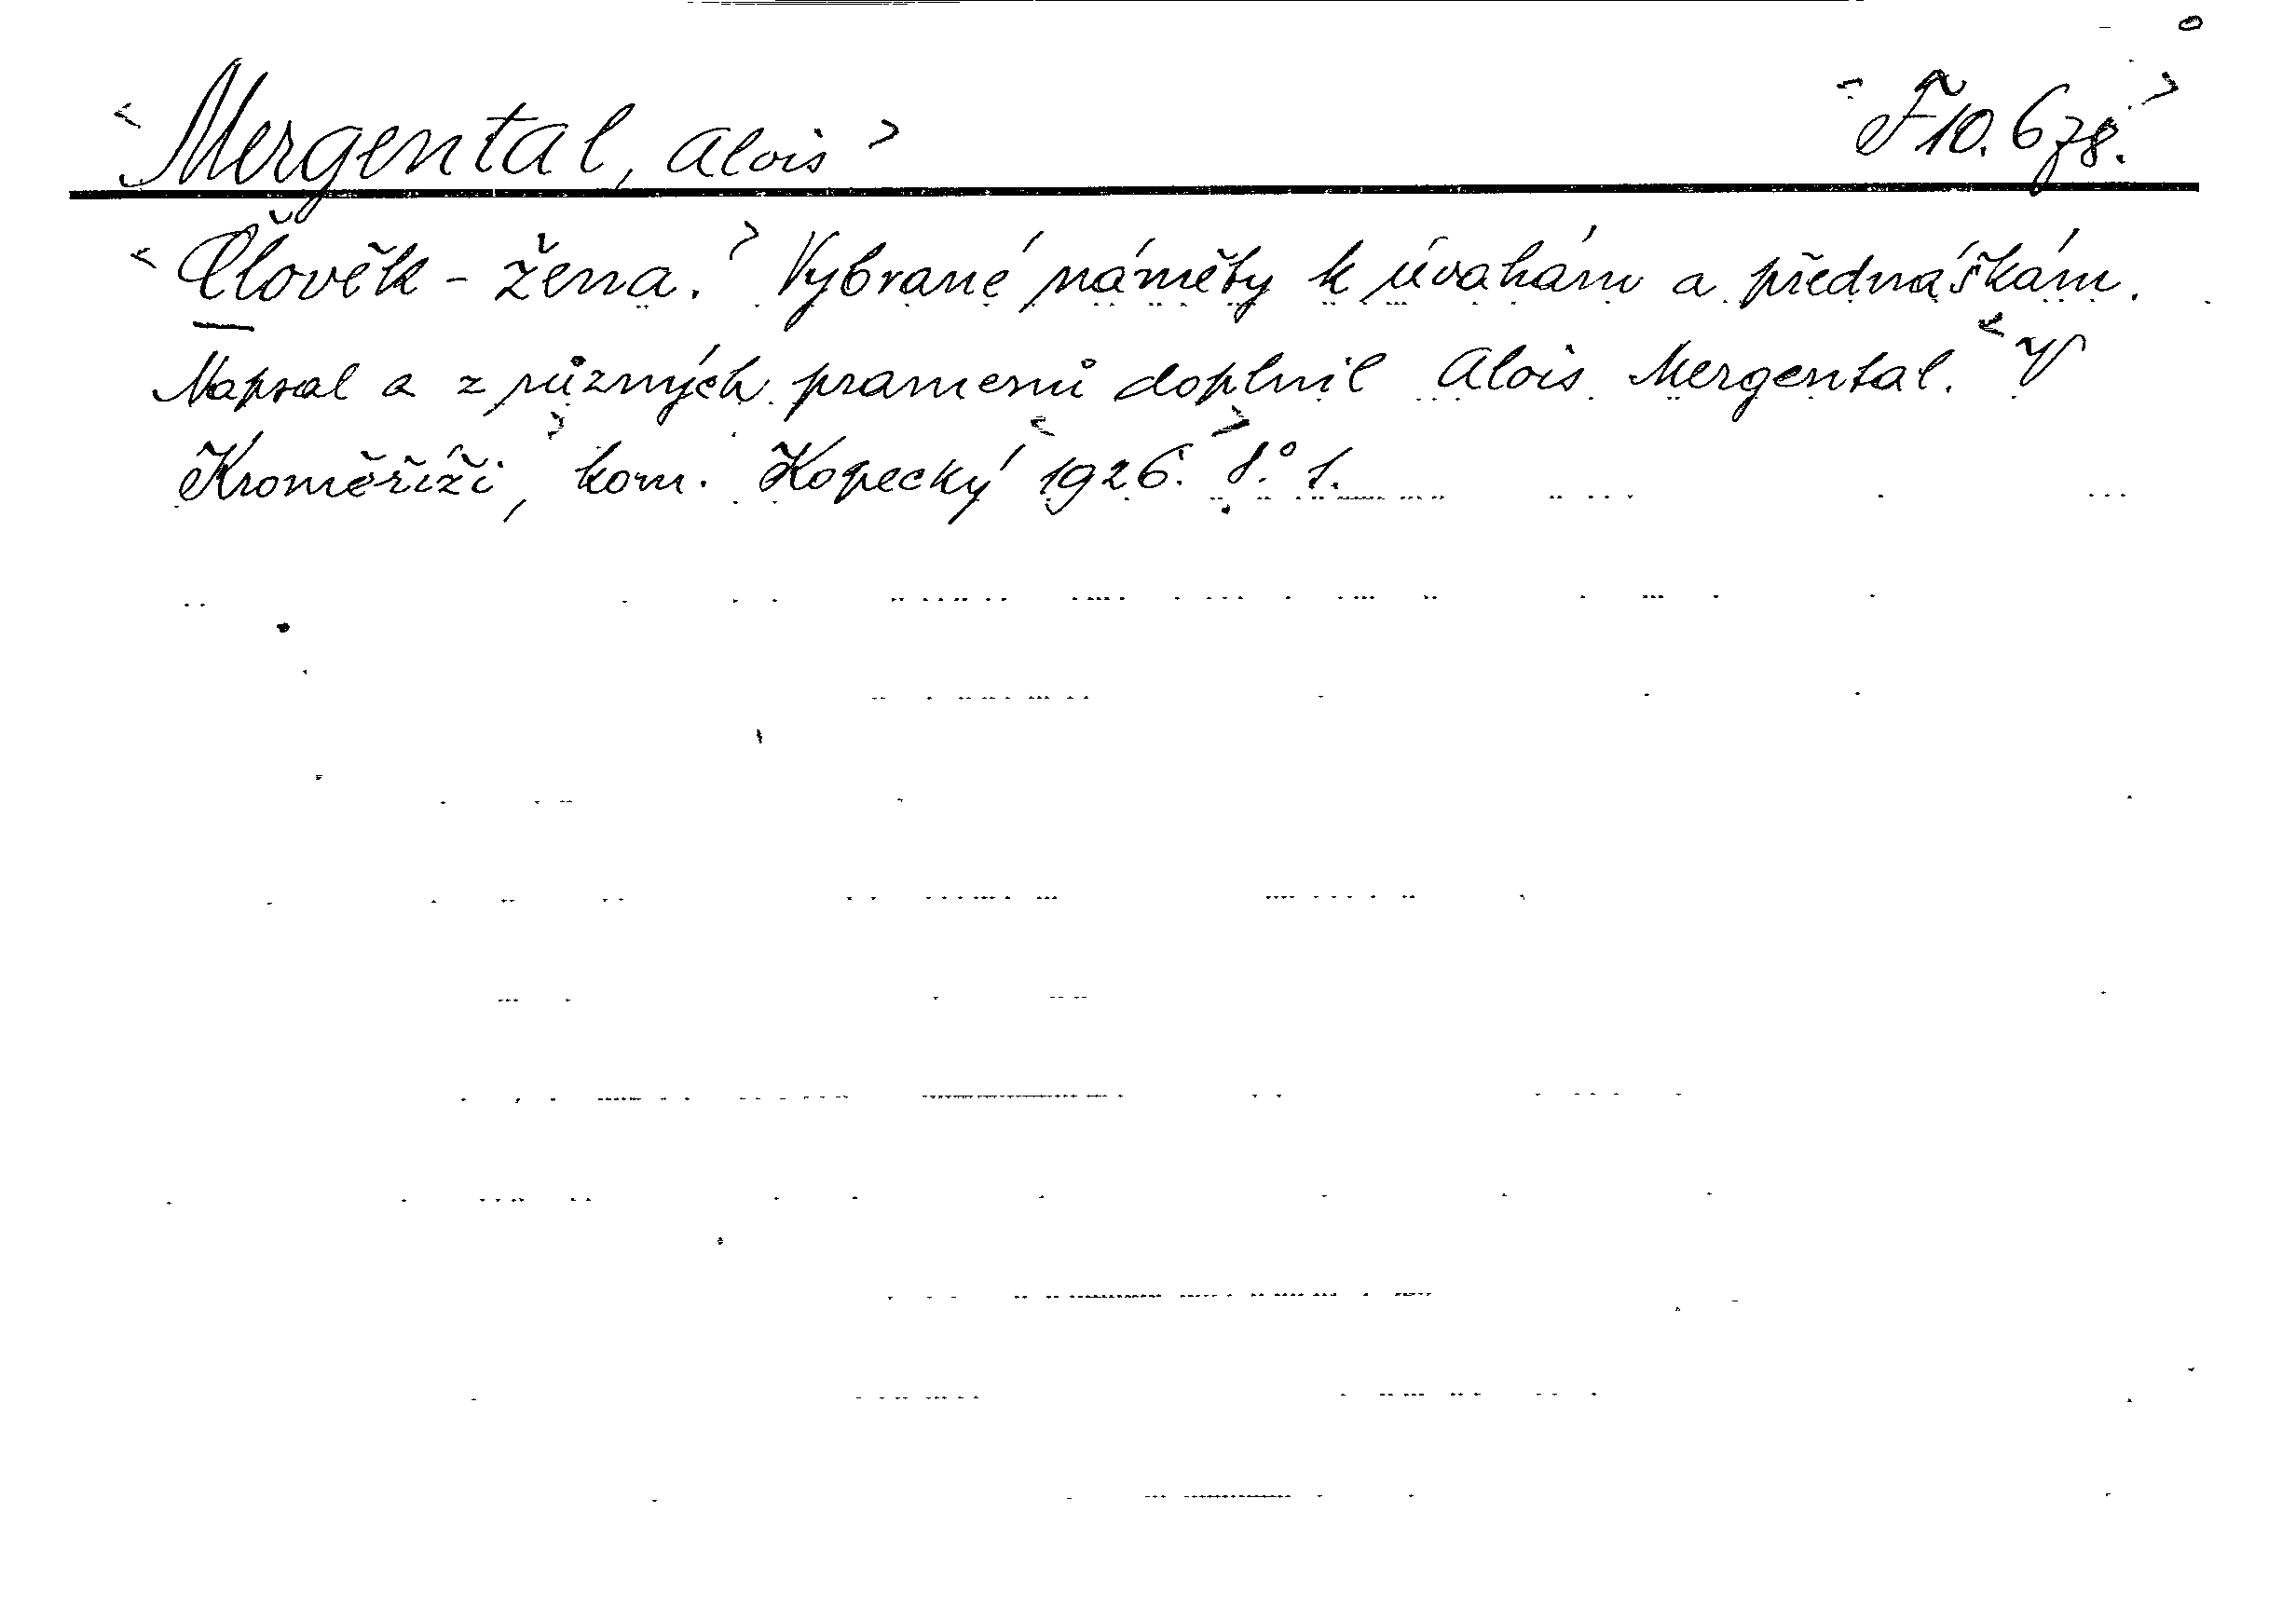 <Mergental, Alois> <F 10.678.>
<Člověk - žena.> Vybrané náměty k úvahám a přednáškám.
Napsal a z různých pramenů doplnil Alois Mergental. <V
Kroměříži,> kom. Kopecký <1926.> 8.° 1.